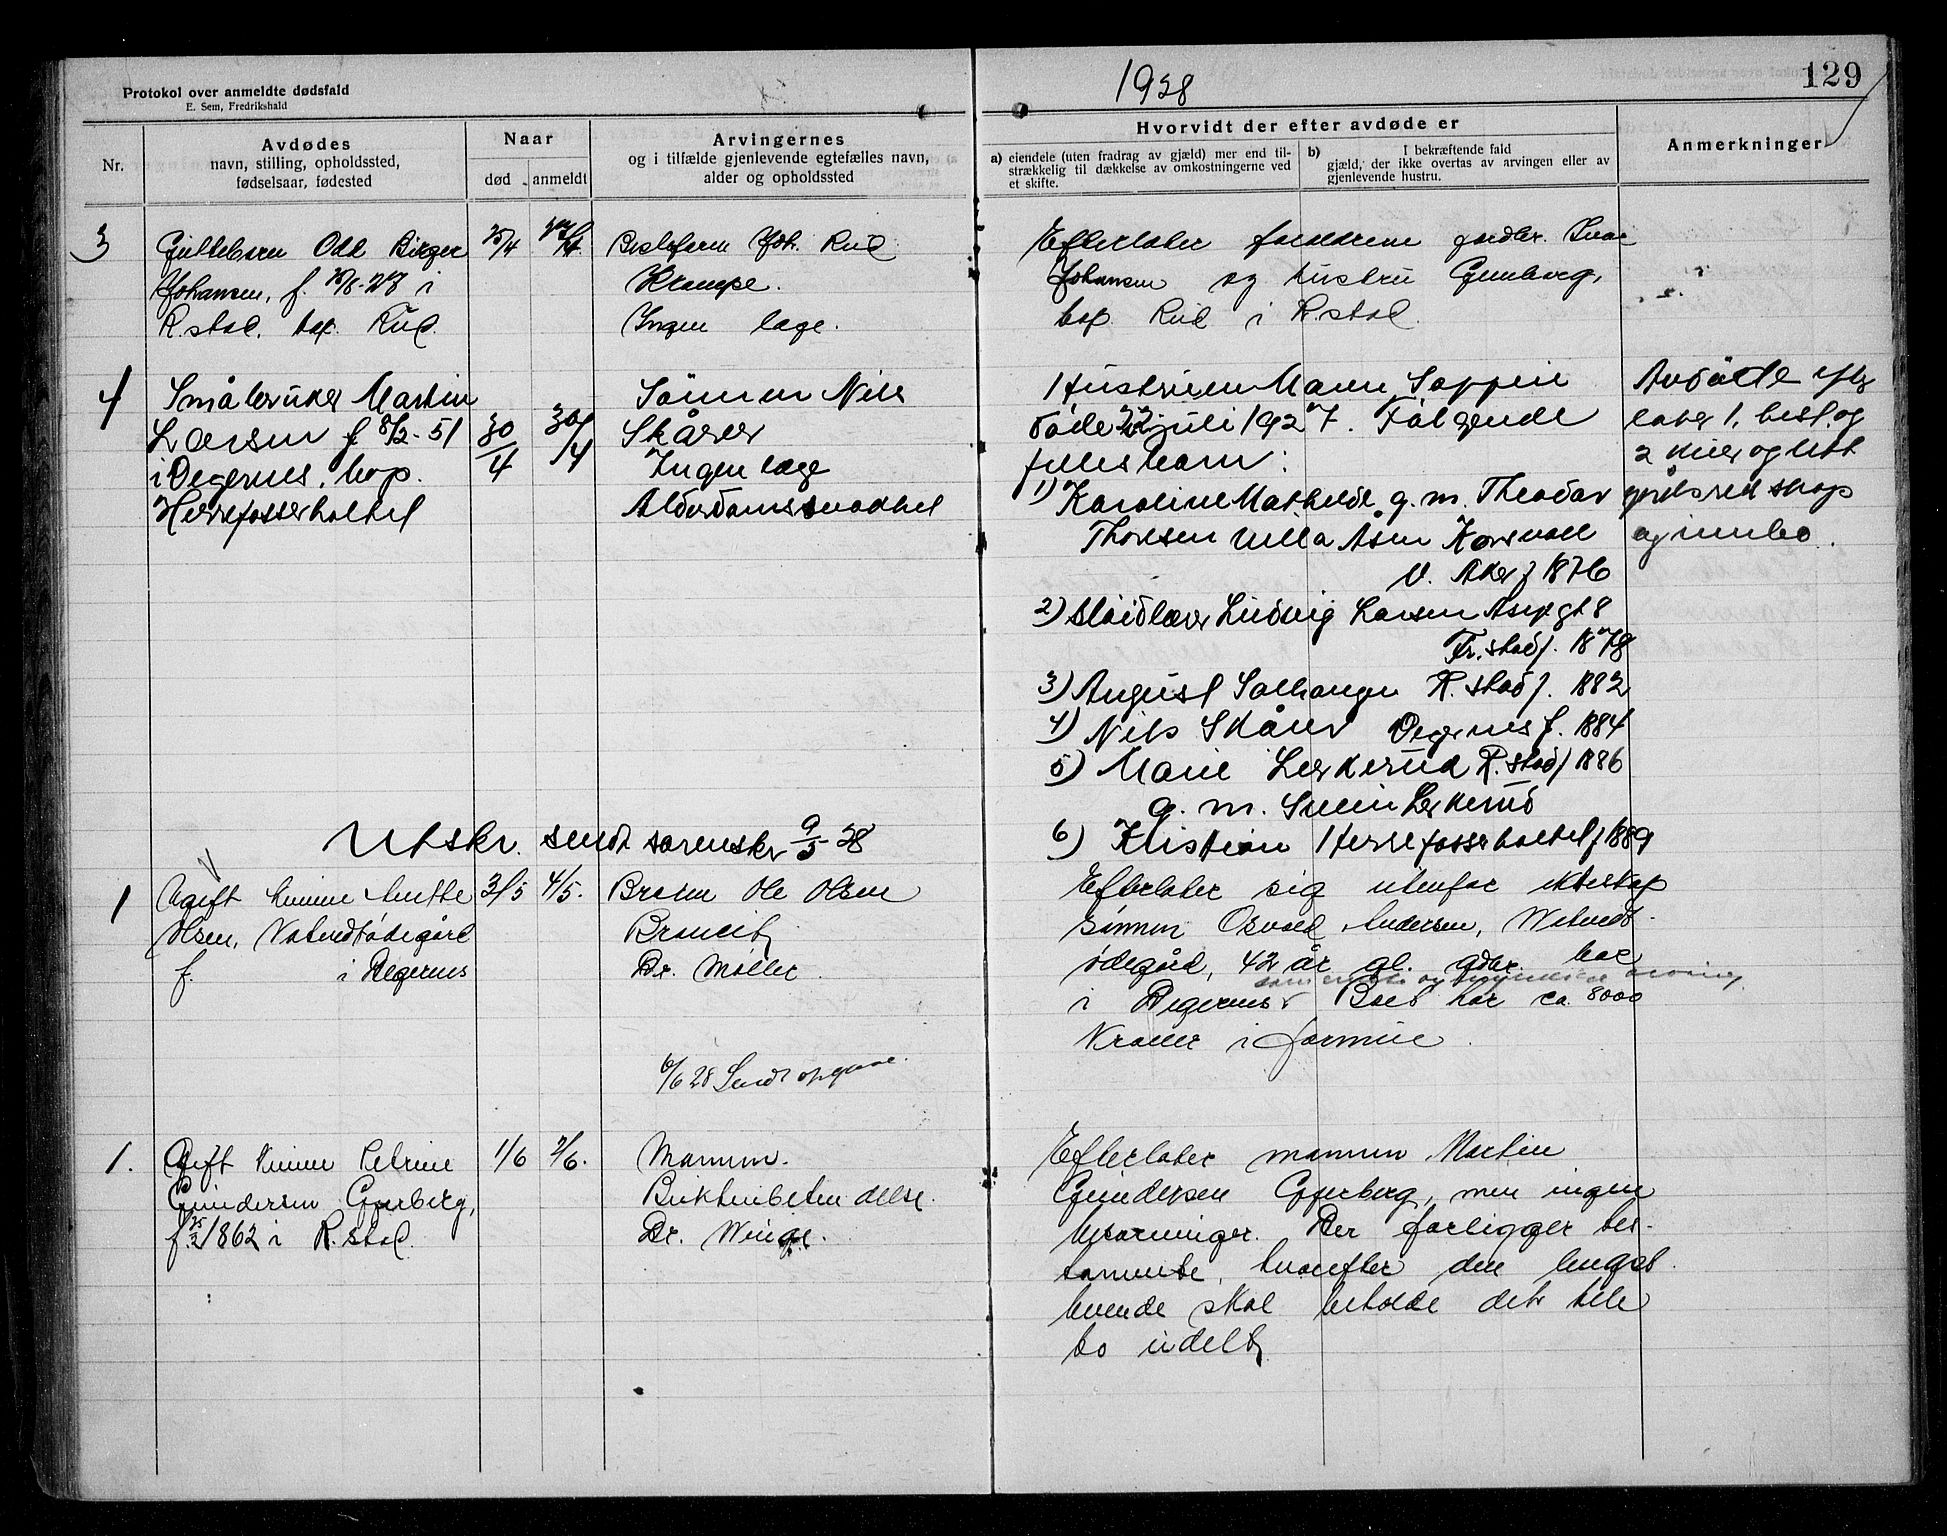 Protokol over anmeldte dødsfald
E. Sem, Fredrikshald
1928
129
Nr.
Avdødes
navn, stilling, opholdssted,
fødselsaar, fødested
Naar
død
anmeldt
Arvingernes
og i tilfælde gjenlevende egtefælles navn,
alder og opholdssted
Hvorvidt der efter avdøde er
a) eiendele (uten fradrag av gjæld) mer end til-
strækkelig til dækkelse av omkostningerne ved
et skifte.
b) I bekræftende fald
gjæld, der ikke overtas av arvingen eller av
gjenlevende hustru.
Anmerkninger
3
Guttebarn Odd Birger
Johansen, f. i
R.stad, bop. Rud.
Bestefaren Joh. Rud
Krampe.
Ingen læge.
Efterlater forældrene gardbr. Ivar
Johansen og hustru Gunborg,
bop. Rud i R.stad.
4
Småbruker Martin
Larsen f 8/2-51
i Degernes, bop.
Herrefosserholtet
30/4
30/4
Sønnen Nils
Skårer
Ingen læge
Alderdomssvakhet
Hustruen Maren Soppen
døde 22 juli 1927. Følgende
fellesbarn:
1) Karoline Mathilde g. m. Theodor
Thoresen villa Åsen Korsvoll
V. Aker f 1876
2) Sløidlærer Ludvig Larsen Asygt 8
Fr.stad f. 1878
3) August Solhaugen R.stad f. 1882
4) Nils Skårer Degernes f. 1884
5) Marie Lerkerud R.stad f 1886
g. m. Svein Lerkerud
6) Kristian Herrefosserholtet f 1889
Avdøde efter
later 1. hest og
2 kuer og litt
gårdsredskap
og innbo.
Utskr. sendt sorenskr 9/5 28
1
Ugift kvinne Anette
Olsen, Vatvedtødegård
f. i Degernes
3/5
4/5.
Broren Ole Olsen
Broncit,
Dr. Møller.
Efterlater sig utenfor ekteskap
sønnen Osvald Andersen, Watvedt-
ødegård, 42 år gl. gdbr. bor
som eneste og myndige arving
i Degernes. Boet har ca. 8000
Kroner i formue.
6/6 28 Sendt opgave.
1.
Gift kvinne Petrine
Gundersen Gjerberg,
f. 25/2 1862 i R.stad.
1/6
2/6.
Mannen.
Bukhinbetendelse.
Dr. Winge.
Efterlater mannen Martin
Gundersen Gjerberg, men ingen
livsarvinger. Der foreligger tes-
tamente, hvorefter den lengst
levende skal beholde det hele
bo udelt,